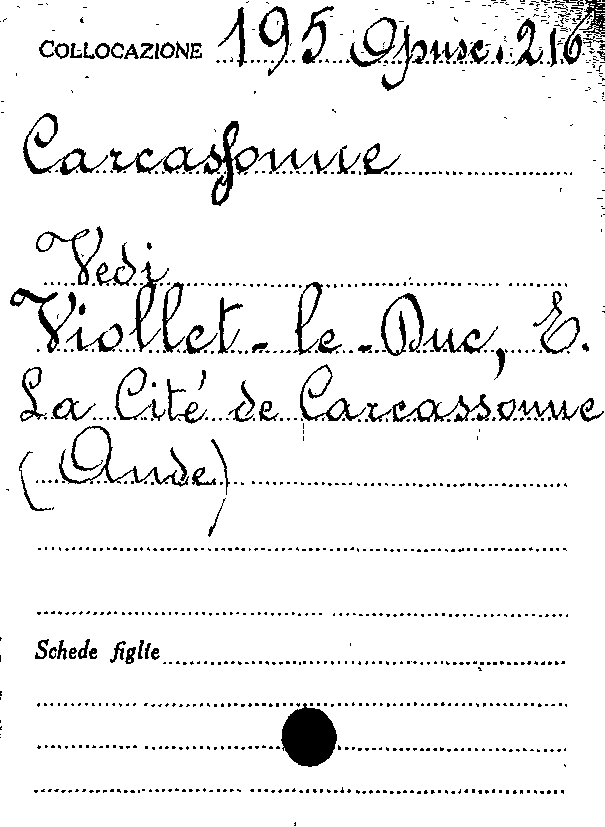 COLLOCAZIONE 195 Opusc. 216
Carcassonne
Vedi
Viollet-le-Duc, E.
La Cité de Carcassonne
(Aude)
Schede figlie